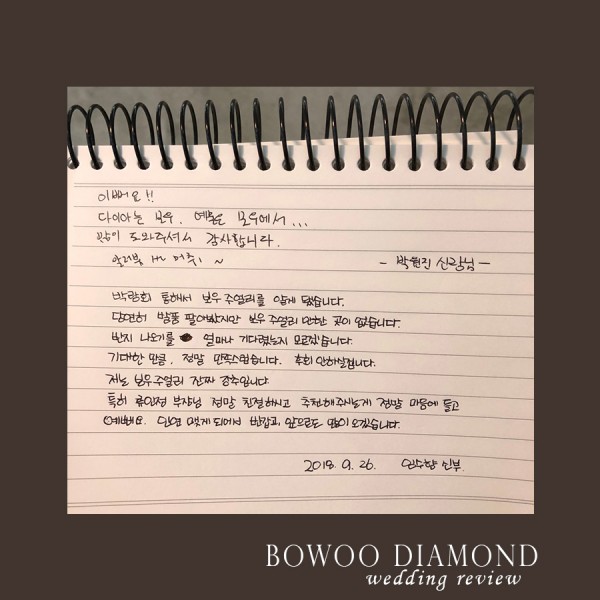 이뻐요!!
다이아는 보우. 예물은 보우에서...
많이 도와주셔서 감사합니다.
~
- 박원진 신랑님 -
박람회 통해서 보우 주얼리를 알게 됐습니다.
당연히 발품 팔아봤지만 보우 주얼리 만한 곳이 없었습니다.
반지 나오기를 얼마나 기다렸는지 모르겠습니다.
기대한 만큼, 정말 만족스럽습니다. 후회 안하실겁니다.
저는 보우주얼리 진짜 강추입니다
특히 류인정 부장님 정말 친절하시고 추천해주시는게 정말 마음에 들고
예뻐요. 인연 맺게 되어서 반갑고, 앞으로도 많이 오겠습니다.
2018. 9. 26. 신부.
BOWOO DIAMOND
wedding review